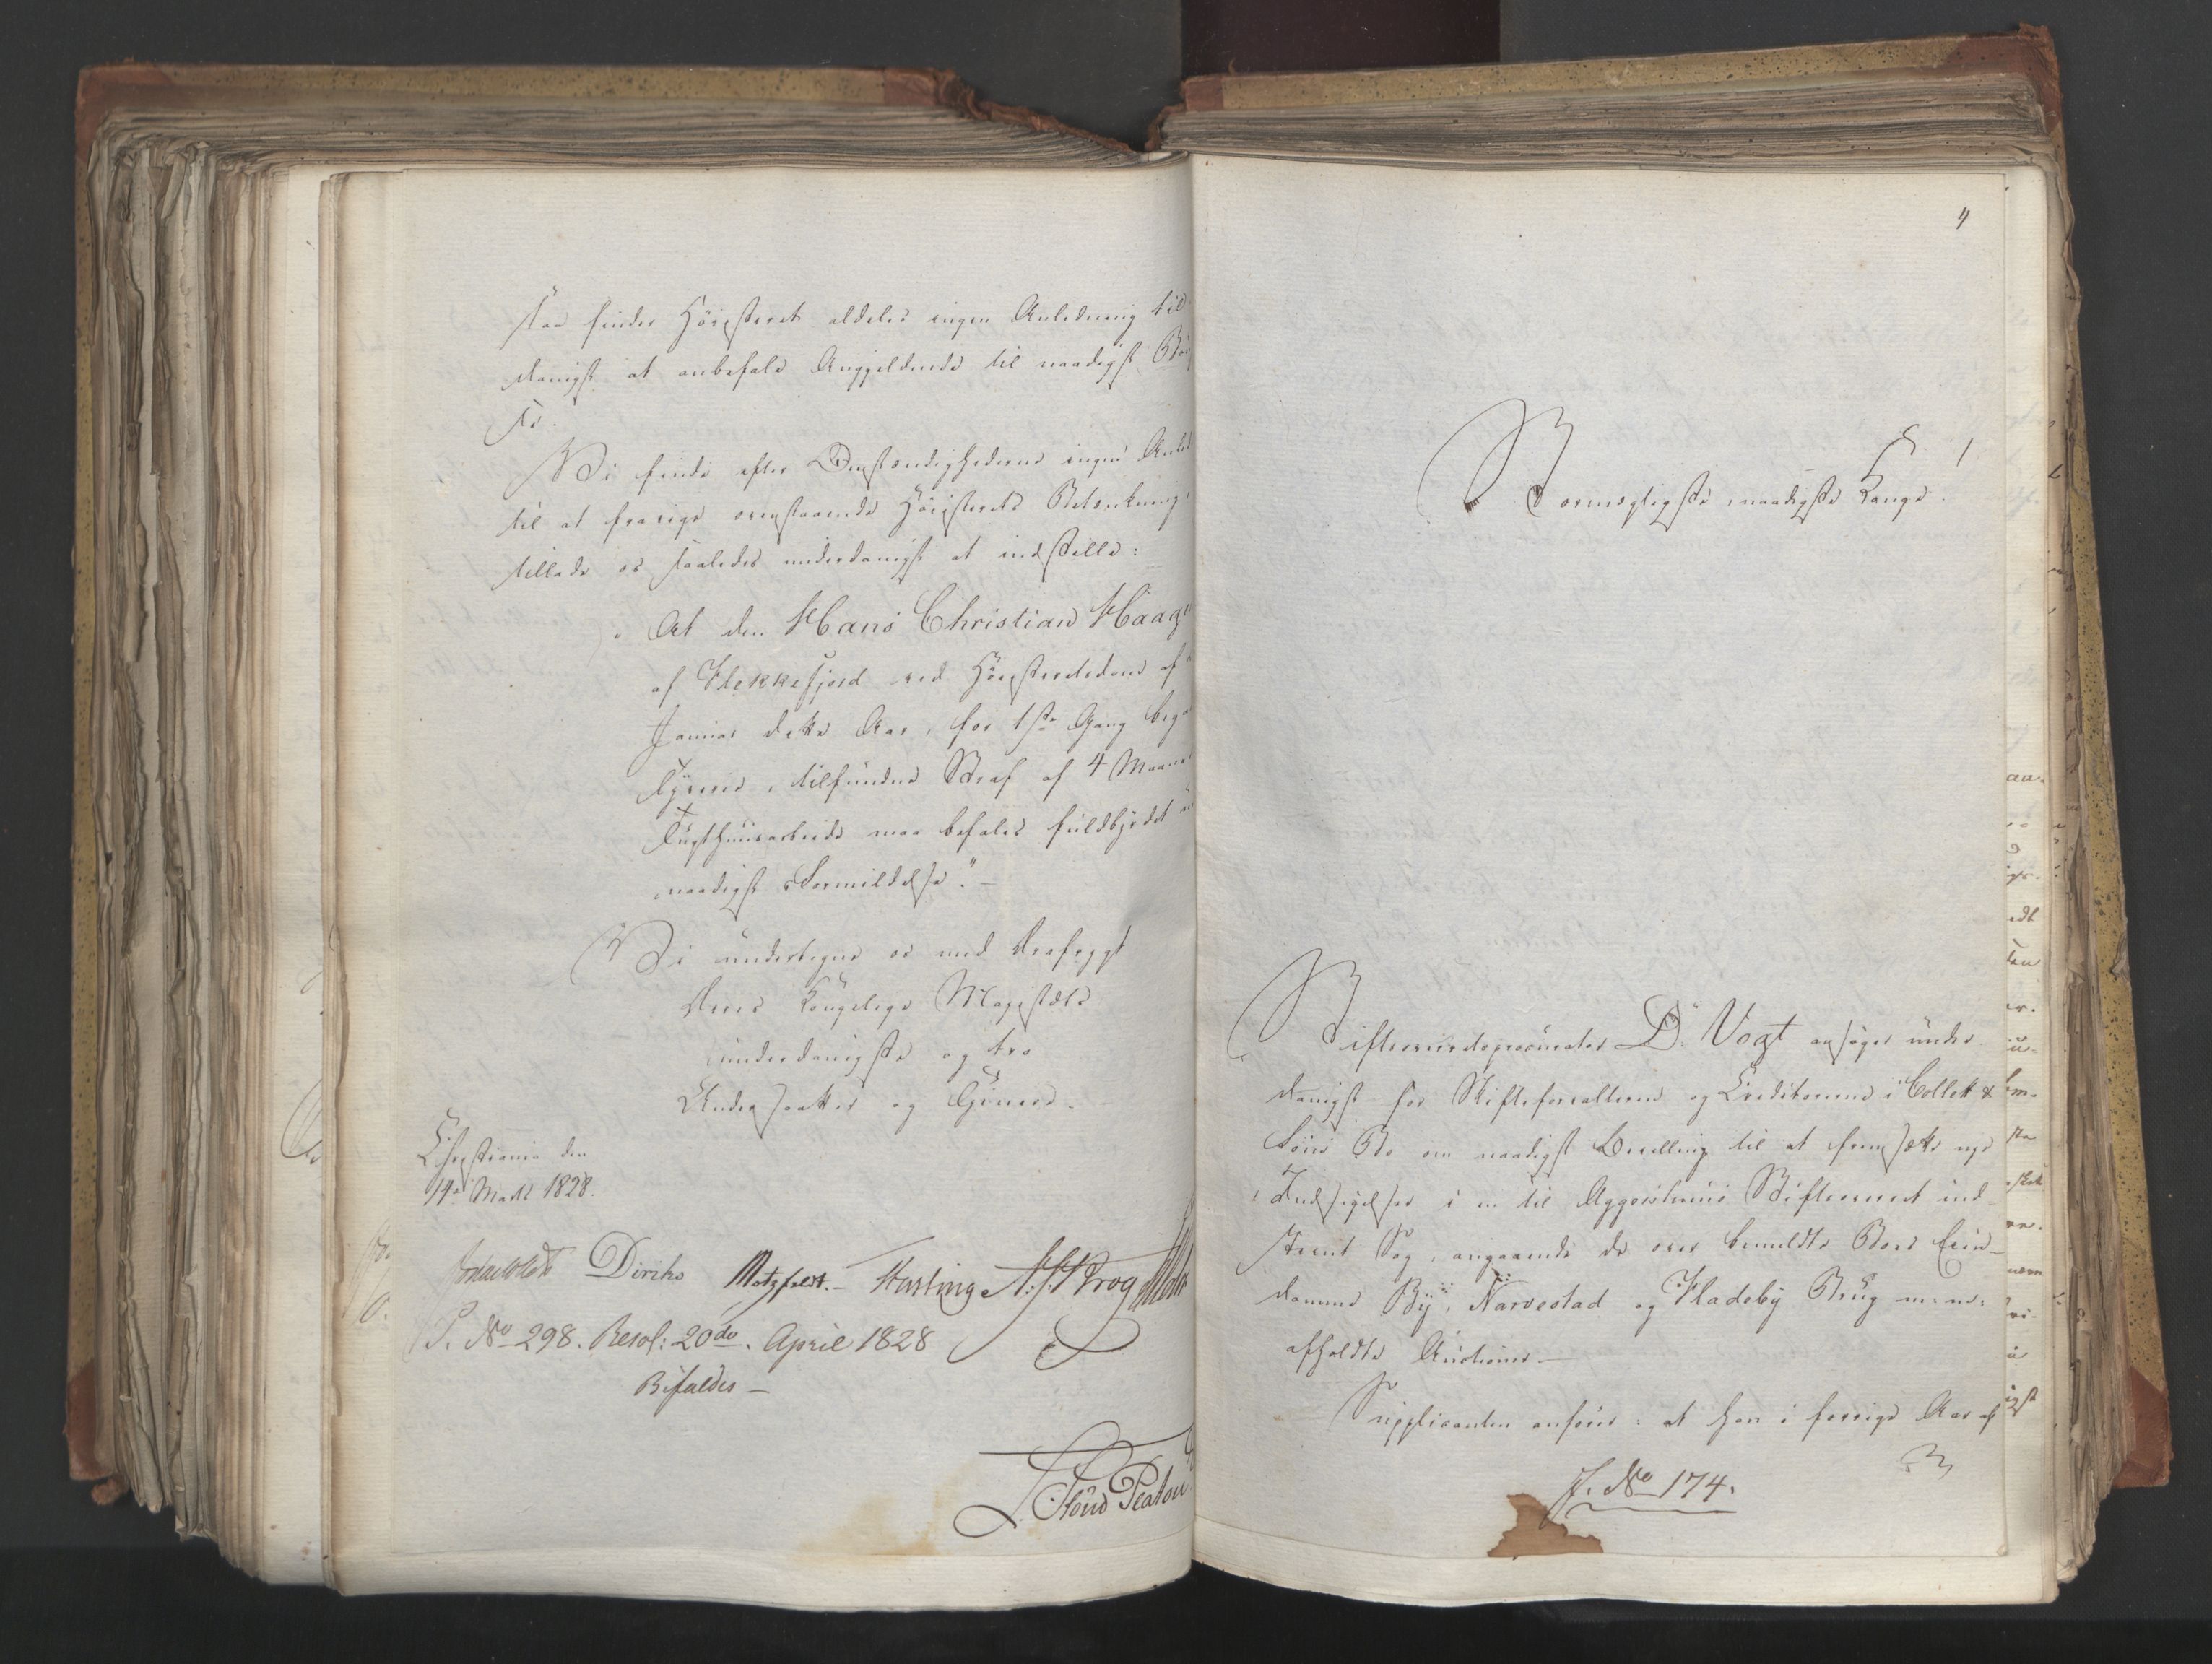 saa finder Höiesteret aldeles ingen Anledning til
danigst at anbefale Angjeldende til naadigst
Vi finde efter Omstændighederne ingen
til at fravige ovenstaaende Höiesterets Betænkning
tillade os saaledes underdanigst at indstille:
"At den Hans Christian Haag
af Flekkefjord ved Höiesteretsdom af
Januar dette Aar, for 1ste Gang
Tyverie, tilfundne Straf af 4 Maane
Tugthuusarbeide maa befales fuldbyrdet
naadigst Formildelse." -
Vi undertegne os med Ærefrygt
Deres Kongelige Majestæts
underdanigste og tro
Undersaatter og Tjenere.
Christiania den
14de Marts 1828.
Diriks Motzfeldt. - Fasting A. J. Krog
P. No 298. Resol: 20de. April 1828
Bifaldes -
4
Stormægtigste, naadigste Konge!
Stiftsoverretsprocurator D. Vogt ansøger under
danigst for Skifteforvalteren og Creditorerne i Collett &
Søns Bo om naadigst Bevilling til at fremsætte nye
Indsigelser i en til Aggershuus Stiftsoverret ind-
stevnt Sag, angaaende de over bemeldte Boes Eien-
domme By, Narvestad og Fladeby Brug m: m:
afholdte Auctioner -
Supplicanten anfører: at han i forrige Aar af
J. No 174.